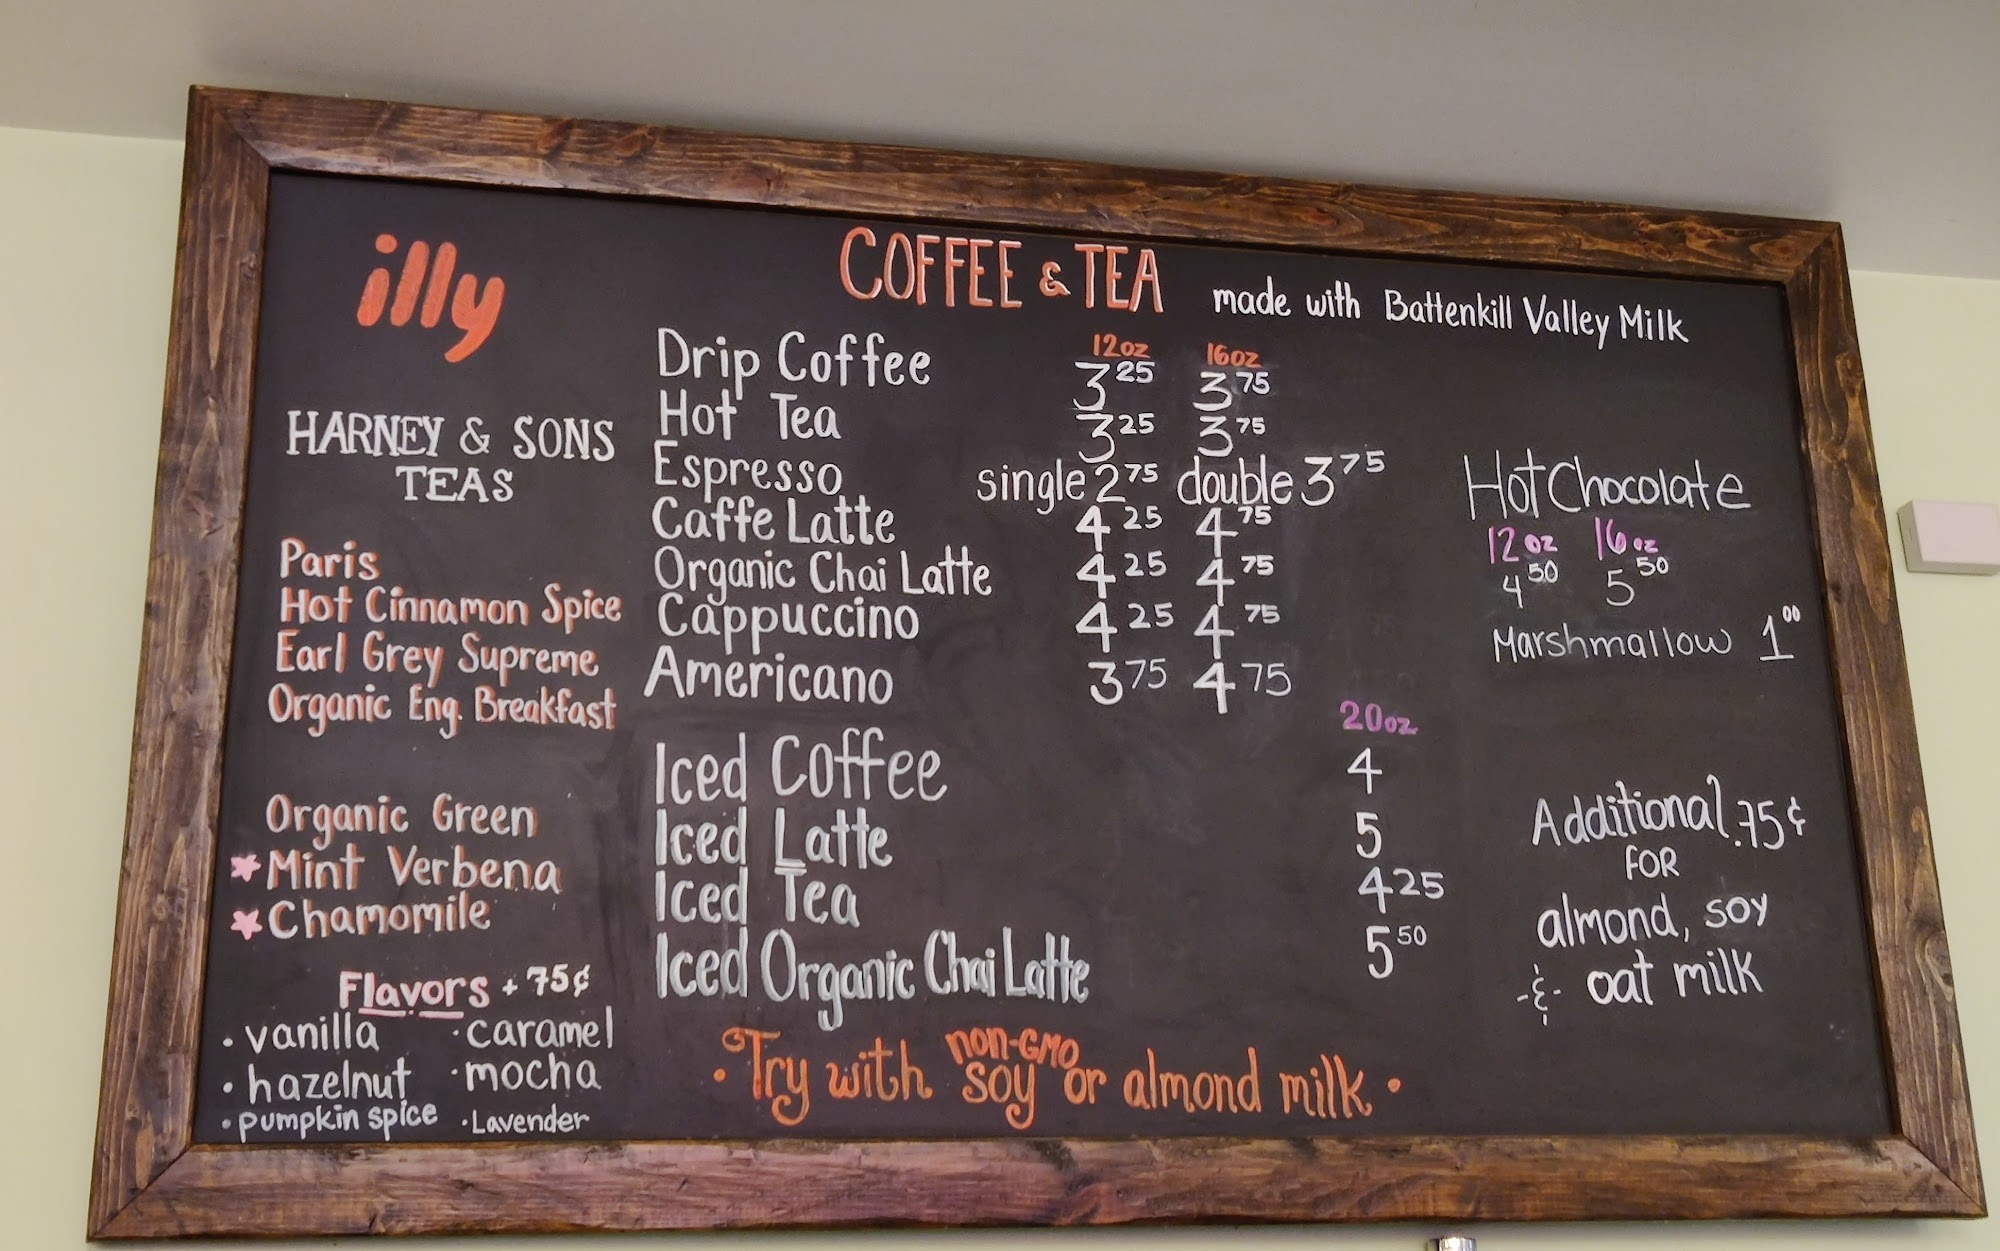 illy
HARNEY & SONS
TEAS
Paris
Hot Cinnamon Spice
Earl Grey Supreme
Organic Eng. Breakfast
Organic Green
Mint Verbena
Chamomile
Flavors + 75¢
• vanilla • caramel
• hazelnut • mocha
• pumpkin spice • Lavender
COFFEE & TEA made with Battenkill Valley Milk
12oz 16oz
Drip Coffee 3 25 3 75
Hot Tea 3 25 3 75
Espresso single 2 75 double 3 75
Caffe Latte 4 25 4 75
Organic Chai Latte 4 25 4 75
Cappuccino 4 25 4 75
Americano 3 75 4 75
20oz
Iced Coffee 4
Iced Latte 5
Iced Tea 4 25
Iced Organic Chai Latte 5 50
• Try with non-GMO soy or almond milk •
Hot Chocolate
12 oz 16 oz
4 50 5 50
Marshmallow 1 00
Additional .75¢
FOR
almond, soy
-&- oat milk